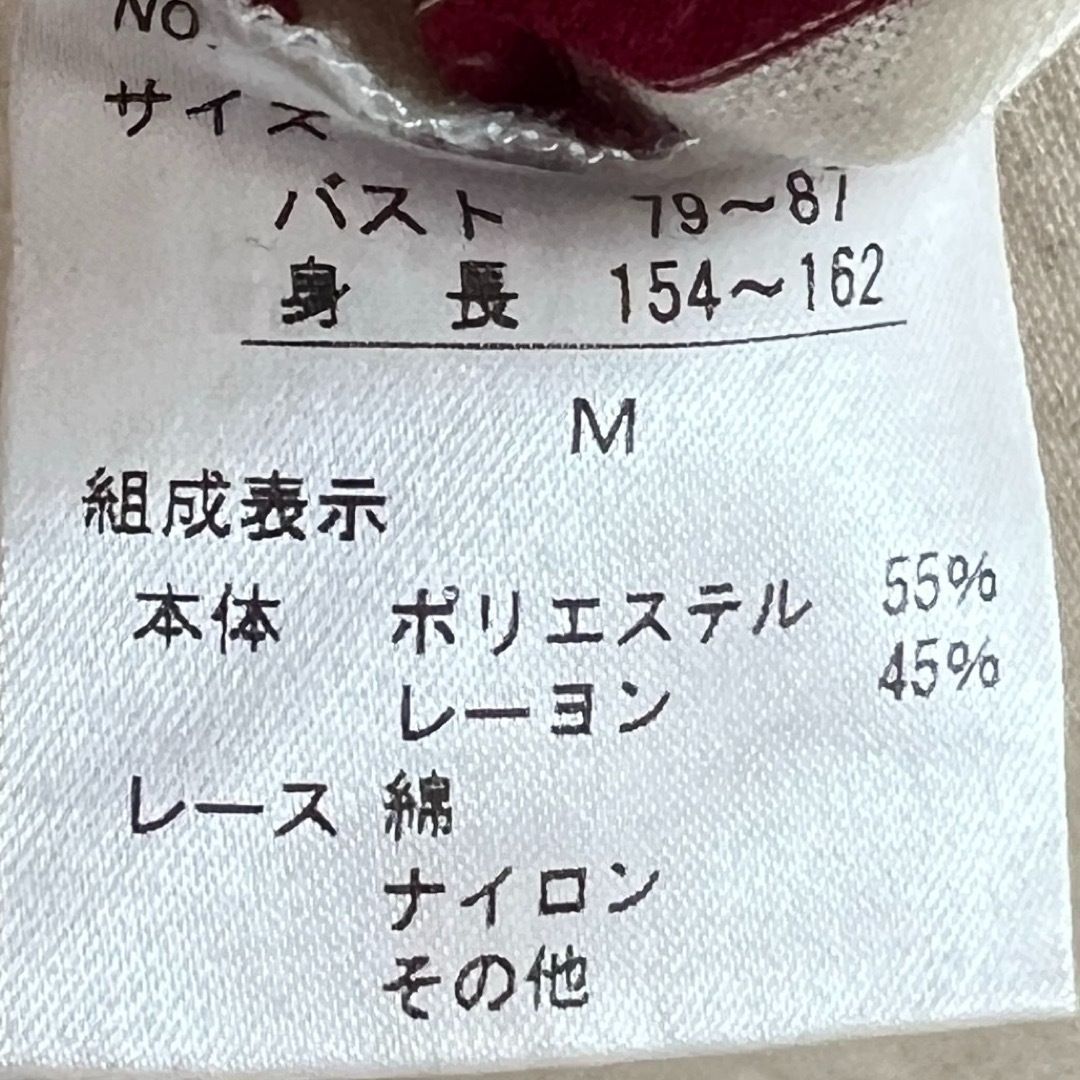 NO.
サイズ
バスト 79～87
身長 154～162
M
組成表示
本体 ポリエステル 55%
レーヨン 45%
レース 綿
ナイロン
その他